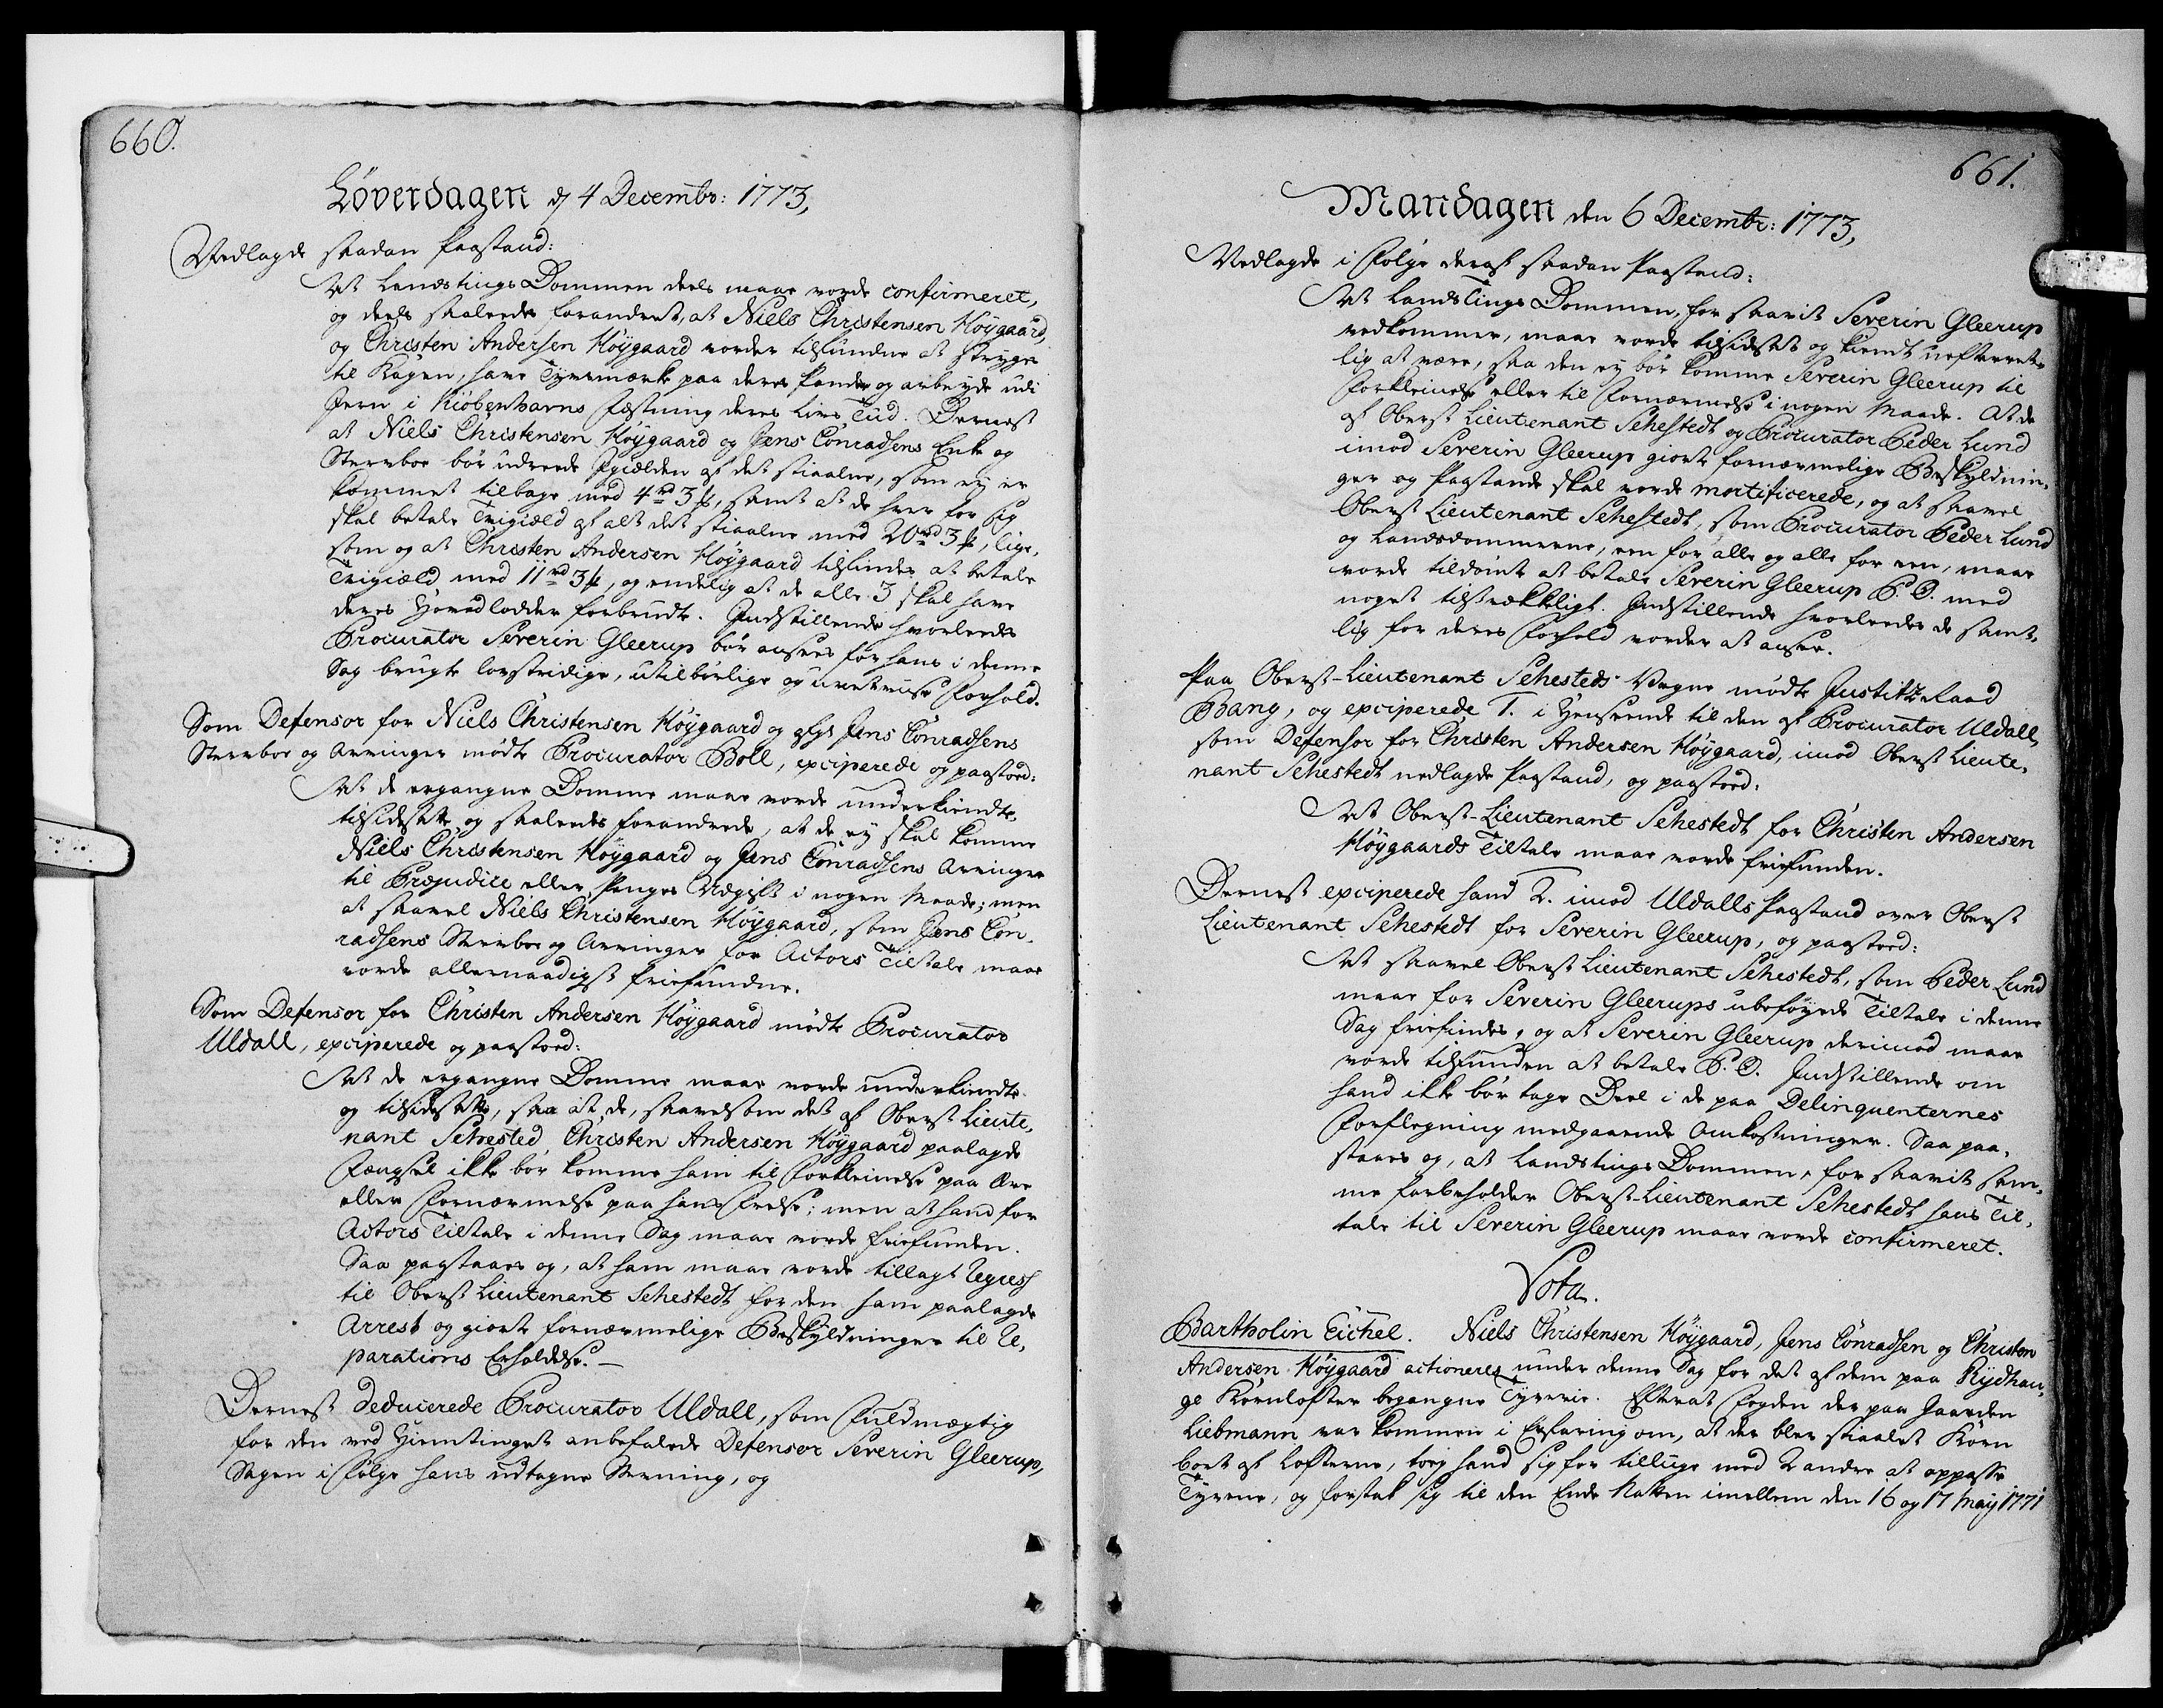 660.
Løverdagen d 4 Decembr: 1773,
Nedlagde saadan Paastand:
At Landstings Dommen deels maae vorde confirmeret,
og deels saaleedes forandret, at Niels Christensen Höygaard,
og Christen Andersen Höygaard vorder tilfundne at stryges
til Kagen, have Tyvemærke paa deres Pande og arbeyde udi
Jern i Kiöbenhavns Fæstning deres Livs Tiid. Dernest
at Niels Christensen Höygaard og Jens Conradsens Enke og
Sterboe bör udreede Igiælden af det stiaalne, som ey er
kommet tilbage med 4 rd 3 ß, samt at de hver for sig
skal betale Tvigiæld af alt det stiaalne med 20 rd 3 ß, lige,
som og at Christen Andersen Höygaard tilfindes at betale
Tvigiæld med 11 rd 3 ß, og endelig at de alle 3 skal have
deres Hovedlodder forbrudt. Indstillende hvorleedes
Procurator Severin Gleerup bör ansees for hans i denne
Sag brugte lovstridige, utilbörlige og uretviise Forhold.
Som Defensor for Niels Christensen Höygaard og afg: Jens Conradsens
Sterboe og Arvinger mödte Procurator Boll, exciperede og paastoed:
At de ergangne Domme maae vorde underkiendte,
tilsidesatte og saaleedes forandrede, at de ey skal komme
Niels Christensen Höygaard og Jens Conradsens Arvinger
til Præjudice eller Penges Udgift i nogen Maade; men
at saavel Niels Christensen Höygaard, som Jens Con-
radsens Sterboe og Arvinger for Actors Tiltale maae
vorde allernaadigst friefundne.
Som Defensor for Christen Andersen Höygaard mödte Procurator
Uldall, exciperede og paastoed:
At de ergangne Domme maae vorde underkiendte
og tilsidesatte, saa at de, saavelsom det af Oberst Lieute,
nant Sehested, Christen Andersen Höygaard paalagde
Fængsel ikke bör komme ham til Forkleinelse paa Ære
eller Fornærmelse paa hans Frelse; men at hand for
Actors Tiltale i denne Sag maae vorde friefunden.
Saa paastaaes og, at ham maae vorde tillagt Regress
til Oberst Lieutenant Sehestedt for den ham paalagde
Arrest og giorte fornærmelige Beskyldninger til Re,
parations Erholdelse.
Dernest deducerede Procurator Uldall, som Fuldmægtig
for den ved Hiemtinget anbefalede Defensor Severin Gleerup,
Sagen i Fölge hans udtagne Stevning, og
661.
Mandagen den 6 Decembr: 1773,
Nedlagde i Fölge deraf saadan Paastand:
At Landstings Dommen, for saavit Severin Gleerup
vedkommer, maae vorde tilsidesat og kiendt uefterret-
lig at være, saa den ey bör komme Severin Gleerup til
Forkleinelse eller til Fornærmelse i nogen Maade. At de
af Oberst Lieutenant Sehestedt og Procurator Peder Lund
imod Severin Gleerup giorte fornærmelige Beskyldnin,
ger og Paastande skal vorde mortificerede, og at saavel
Oberst Lieutenant Sehestedt, som Procurator Peder Lund
og Landsdommerne, een for alle og alle for een, maae
vorde tildömt at betale Severin Gleerup P. O. med
noget tilstrækkeligt. Indstillende hvorleedes de samt,
lig for deres Forhold vorder at ansee.
Paa Oberst-Lieutenant Sehesteds Vegne mödte Justitz Raad
Bang, og exciperede 1. i Henseende til den af Procurator Uldall,
som Defensor for Christen Andersen Höygaard, imod Oberst Lieute,
nant Sehestedt nedlagde Paastand, og paastoed:
At Oberst-Lieutenant Sehestedt for Christen Andersen
Höygaards Tiltale maae vorde friefunden.
Dernest exciperede hand 2. imod Uldalls Paastand over Oberst
Lieutenant Sehestedt for Severin Gleerup, og paastoed:
At saavel Oberst Lieutenant Sehestedt, som Peder Lund
maae for Severin Gleerups ubeföyede Tiltale i denne
Sag friefindes, og at Severin Gleerup derimod maae
vorde tilfunden at betale P. O. Indstillende om
hand ikke bör tage Deel i de paa Delinquenternes
Forflegning medgaaende Omkostninger. Saa paa,
staaes og, at Landstings Dommen, for saavit sam,
me forbeholder Oberst-Lieutenant Sehestedt hans Til,
tale til Severin Gleerup maae vorde confirmeret.
Vota.
Bartholin Eichel. Niels Christensen Höygaard, Jens Conradsen og Christen
Andersen Höygaard actioneres under denne Sag for det af dem paa Rydhau,
ge Kornlofter begangne Tyverie. Efterat Fogden der paa Gaarden
Liebmann var kommen i Erfaring om, at der blev stiaalet Korn
bort af Lofterne, tog hand sig for tillige med 2 andre at oppasse
Tyvene, og forstak sig til den Ende Natten imellem den 16 og 17 May 1771